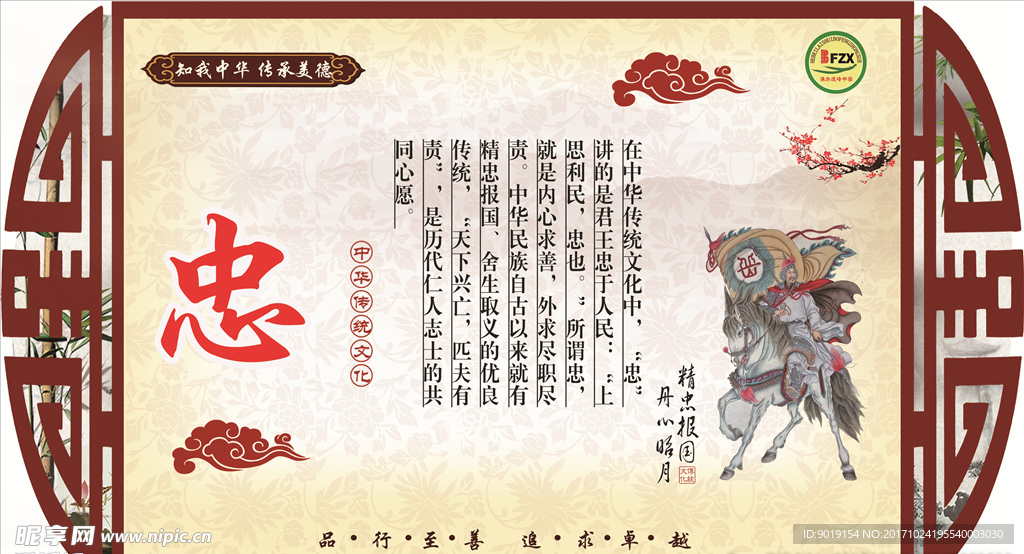 知我中华 传承美德
BFZX
忠
中华传统文化
在中华传统文化中，“忠”
讲的是君王忠于人民：“上
思利民，忠也。”所谓忠，
就是内心求善，外求尽职尽
责。中华民族自古以来就有
精忠报国、舍生取义的优良
传统，“天下兴亡，匹夫有
责”，是历代仁人志士的共
同心愿。
精忠报国
丹心昭月
传统文化
岳
品·行·至·善 追·求·卓·越
昵享网 www.nipic.cn
ID:9019154 NO:20171024195540003030